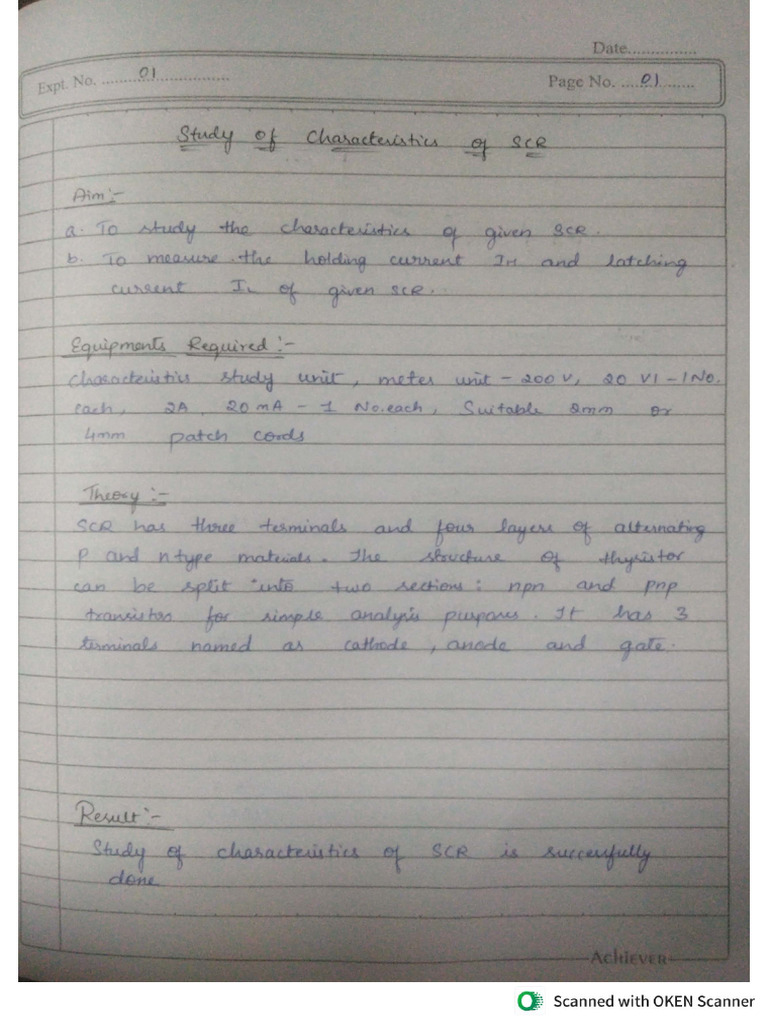 Date...............
Expt. No. ..........01..................
Page No. ....01.........
Study of Characteristics of SCR
Aim :-
a. To study the characteristics of given SCR.
b. To measure the holding current IH and latching
current IL of given SCR.
Equipments Required :-
Characteristics study unit, meter unit - 200 V, 20 V1 - 1 No.
each, 2A, 20 mA - 1 No. each, Suitable 2mm or
4mm patch cords
Theory :-
SCR has three terminals and four layers of alternating
P and n type materials. The structure of thyristor
can be split into two sections: npn and pnp
transistor for simple analysis purpose. It has 3
terminals named as cathode, anode and gate.
Result :-
Study of characteristics of SCR is successfully
done
ACHIEVER
Scanned with OKEN Scanner